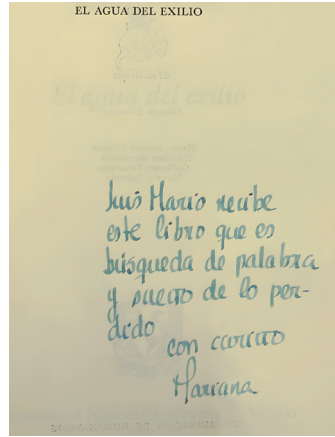 EL AGUA DEL EXILIO
El agua del exilio
Luis Mario recibe
este libro que es
búsqueda de palabra
y sueño de lo per-
dido
con cariño
Mariana